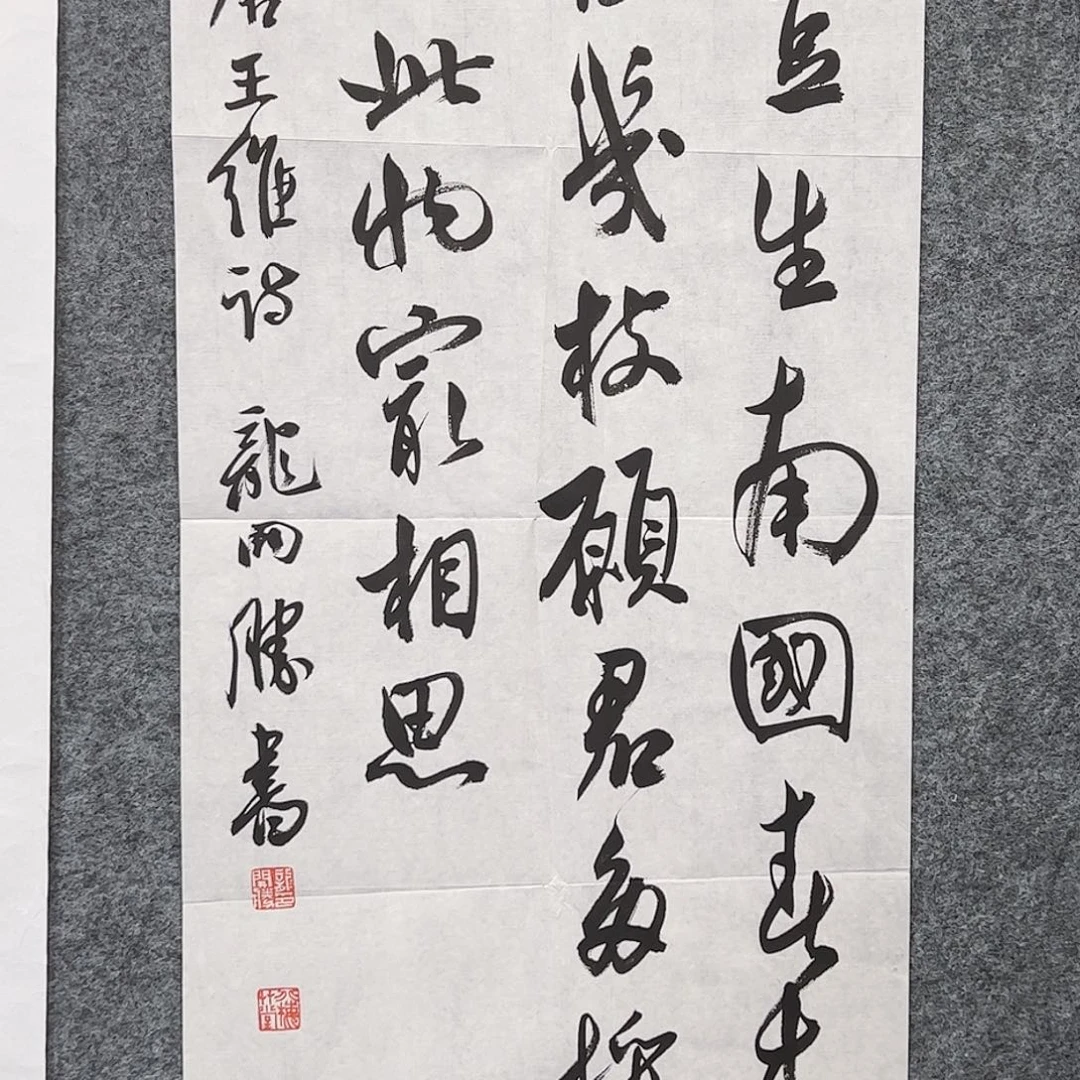 豆生南國春来
幾枝願君多採
此物最相思
唐王維詩 龍開勝書